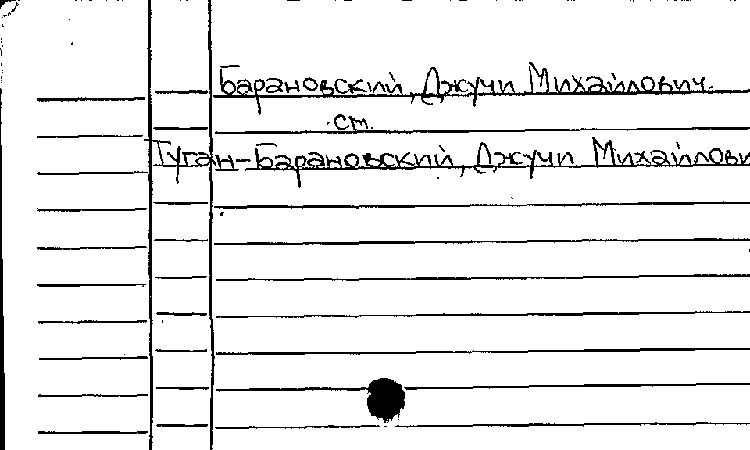 Барановский, Джучи Михайлович.
ст.
Туган-Барановский, Джучи Михайлови